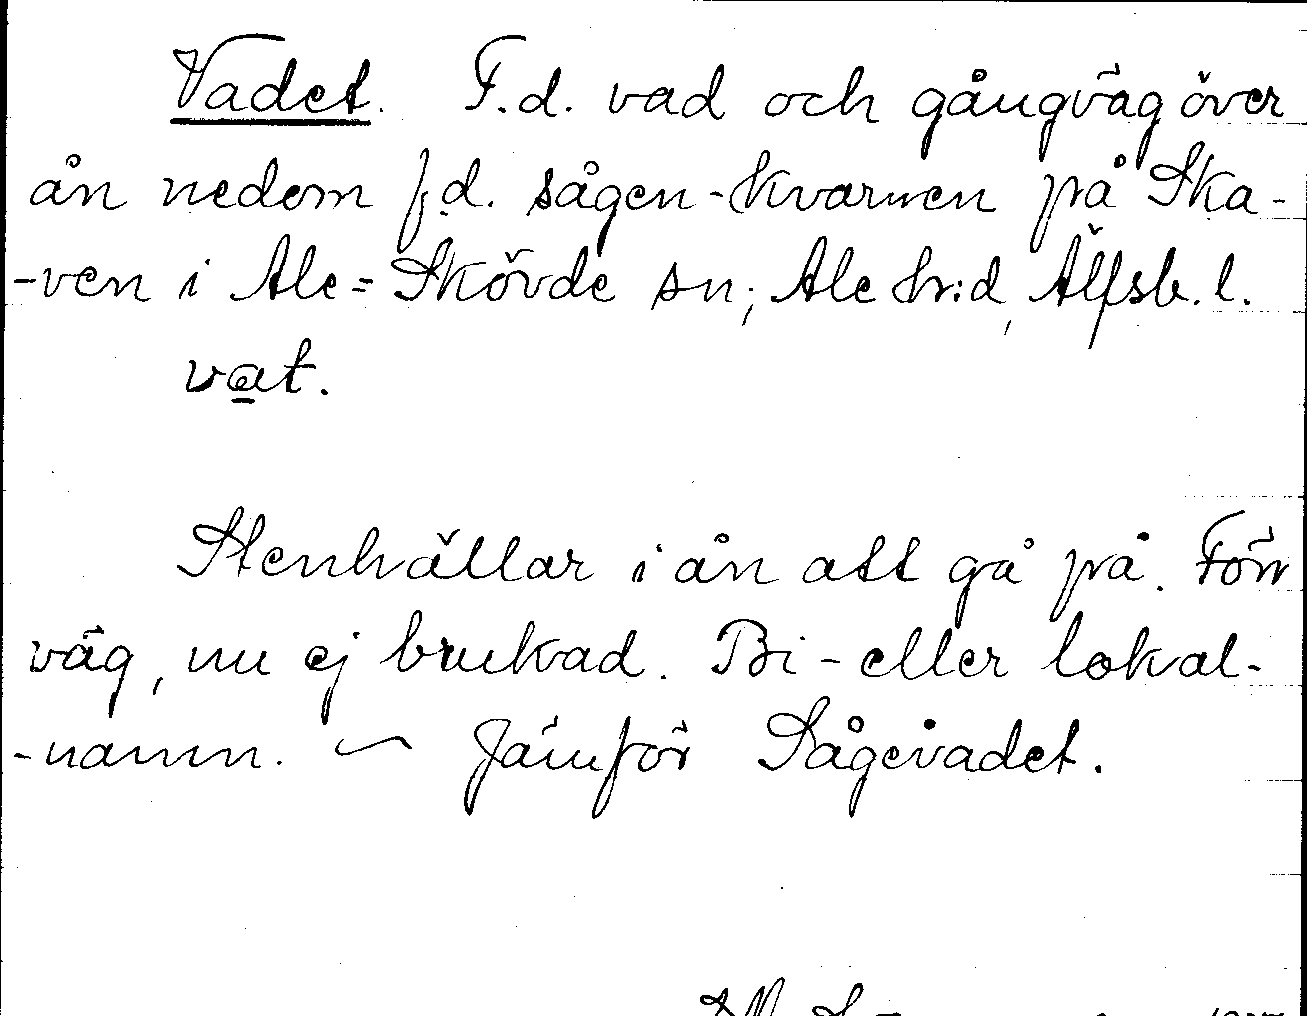 Vadet. F.d. vad och gångväg över
ån nedom f.d. sågen-kvarnen på Ska-
-ven i Ale=Skövde sn; Ale hr:d, Älfsb. l.
vat.
Stenhällar i ån att gå på. Förr
väg, nu ej brukad. Bi- eller lokal-
-namn. ~ Jämför Sågevadet.